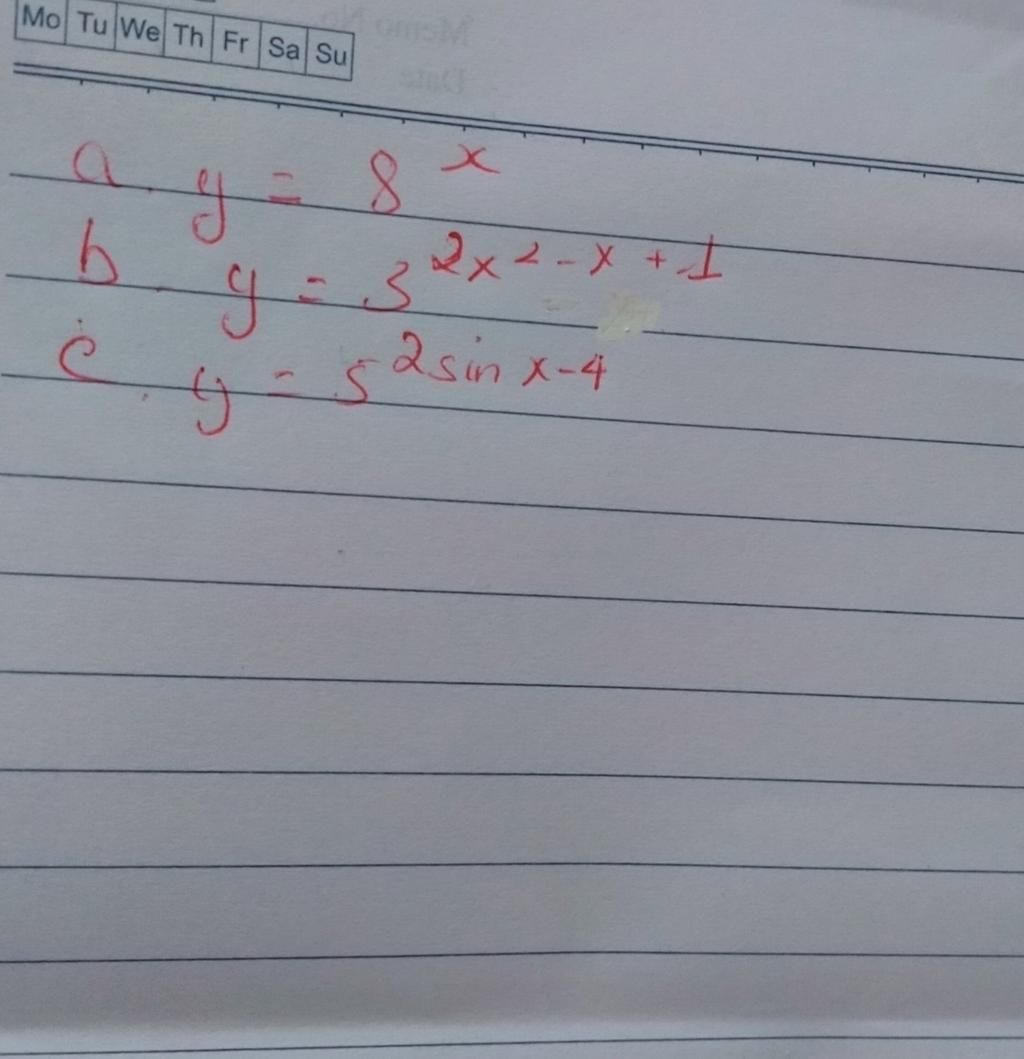 Mo Tu We Th Fr Sa Su
Memo No.
Date
a. y = 8^x
b. y = 3^{2x^2 - x + 1}
c. y = 5^{2 sin x - 4}